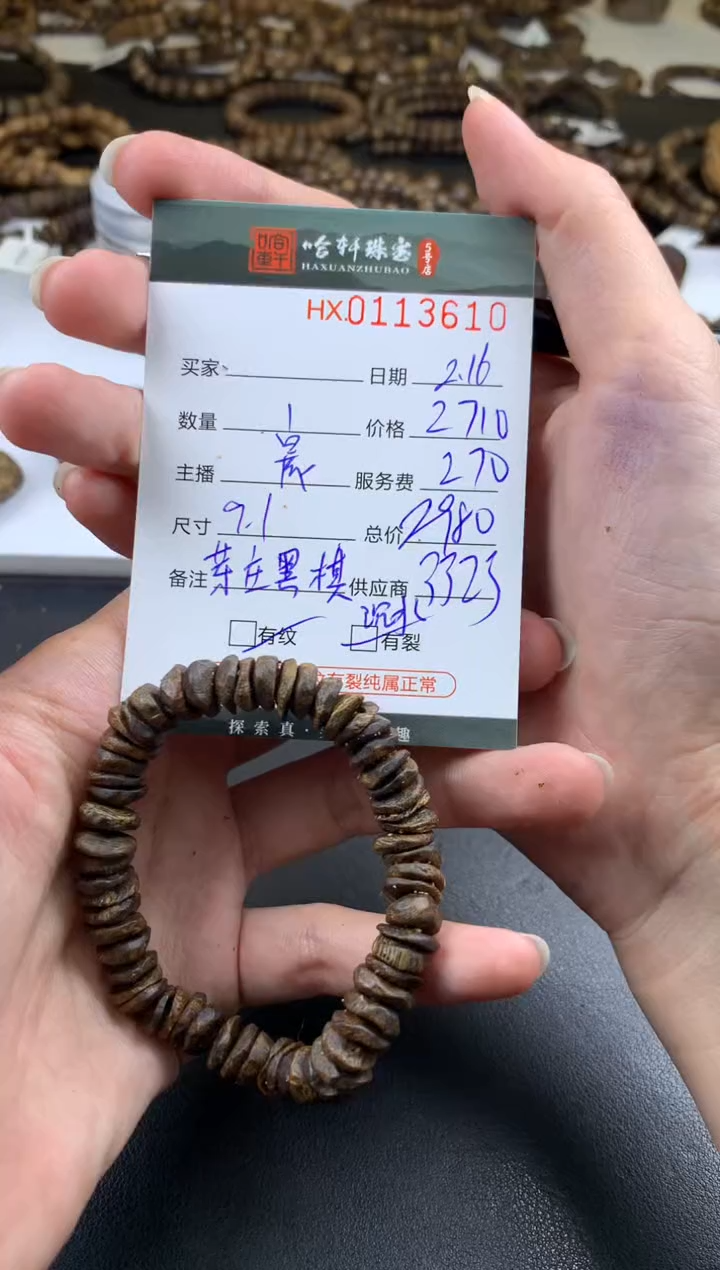 哈轩珠宝 5号店
HAXUANZHUBAO
HX.0113610
买家 日期 2.16
数量 1 价格 2710
主播 晟 服务费 270
尺寸 9.1 总价 2980
备注 芽庄黑棋 供应商 3323
沉水
有纹 有裂
有裂纯属正常
探索真·
趣